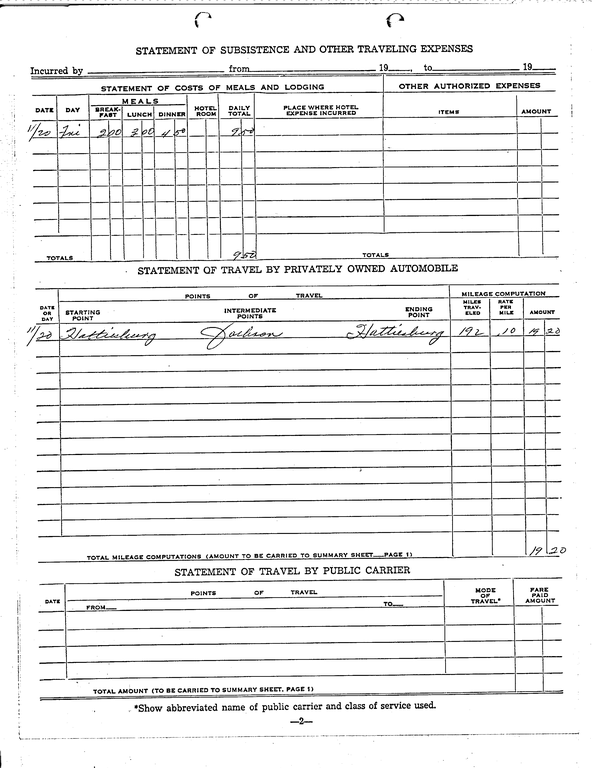 STATEMENT OF SUBSISTENCE AND OTHER TRAVELING EXPENSES
Incurred by from 19 , to 19
STATEMENT OF COSTS OF MEALS AND LODGING OTHER AUTHORIZED EXPENSES
MEALS
DATE DAY BREAK-FAST LUNCH DINNER HOTEL ROOM DAILY TOTAL PLACE WHERE HOTEL EXPENSE INCURRED ITEMS AMOUNT
11/20 Fri 2 00 3 00 4 50 9 50
TOTALS 9 50 TOTALS
STATEMENT OF TRAVEL BY PRIVATELY OWNED AUTOMOBILE
POINTS OF TRAVEL MILEAGE COMPUTATION
DATE OR DAY STARTING POINT INTERMEDIATE POINTS ENDING POINT MILES TRAV-ELED RATE PER MILE AMOUNT
11/20 Hattiesburg Jackson Hattiesburg 192 .10 19 20
TOTAL MILEAGE COMPUTATIONS (AMOUNT TO BE CARRIED TO SUMMARY SHEET—PAGE 1) 19 20
STATEMENT OF TRAVEL BY PUBLIC CARRIER
DATE POINTS OF TRAVEL MODE OF TRAVEL* FARE PAID AMOUNT
FROM— TO—
TOTAL AMOUNT (TO BE CARRIED TO SUMMARY SHEET, PAGE 1)
*Show abbreviated name of public carrier and class of service used.
—2—